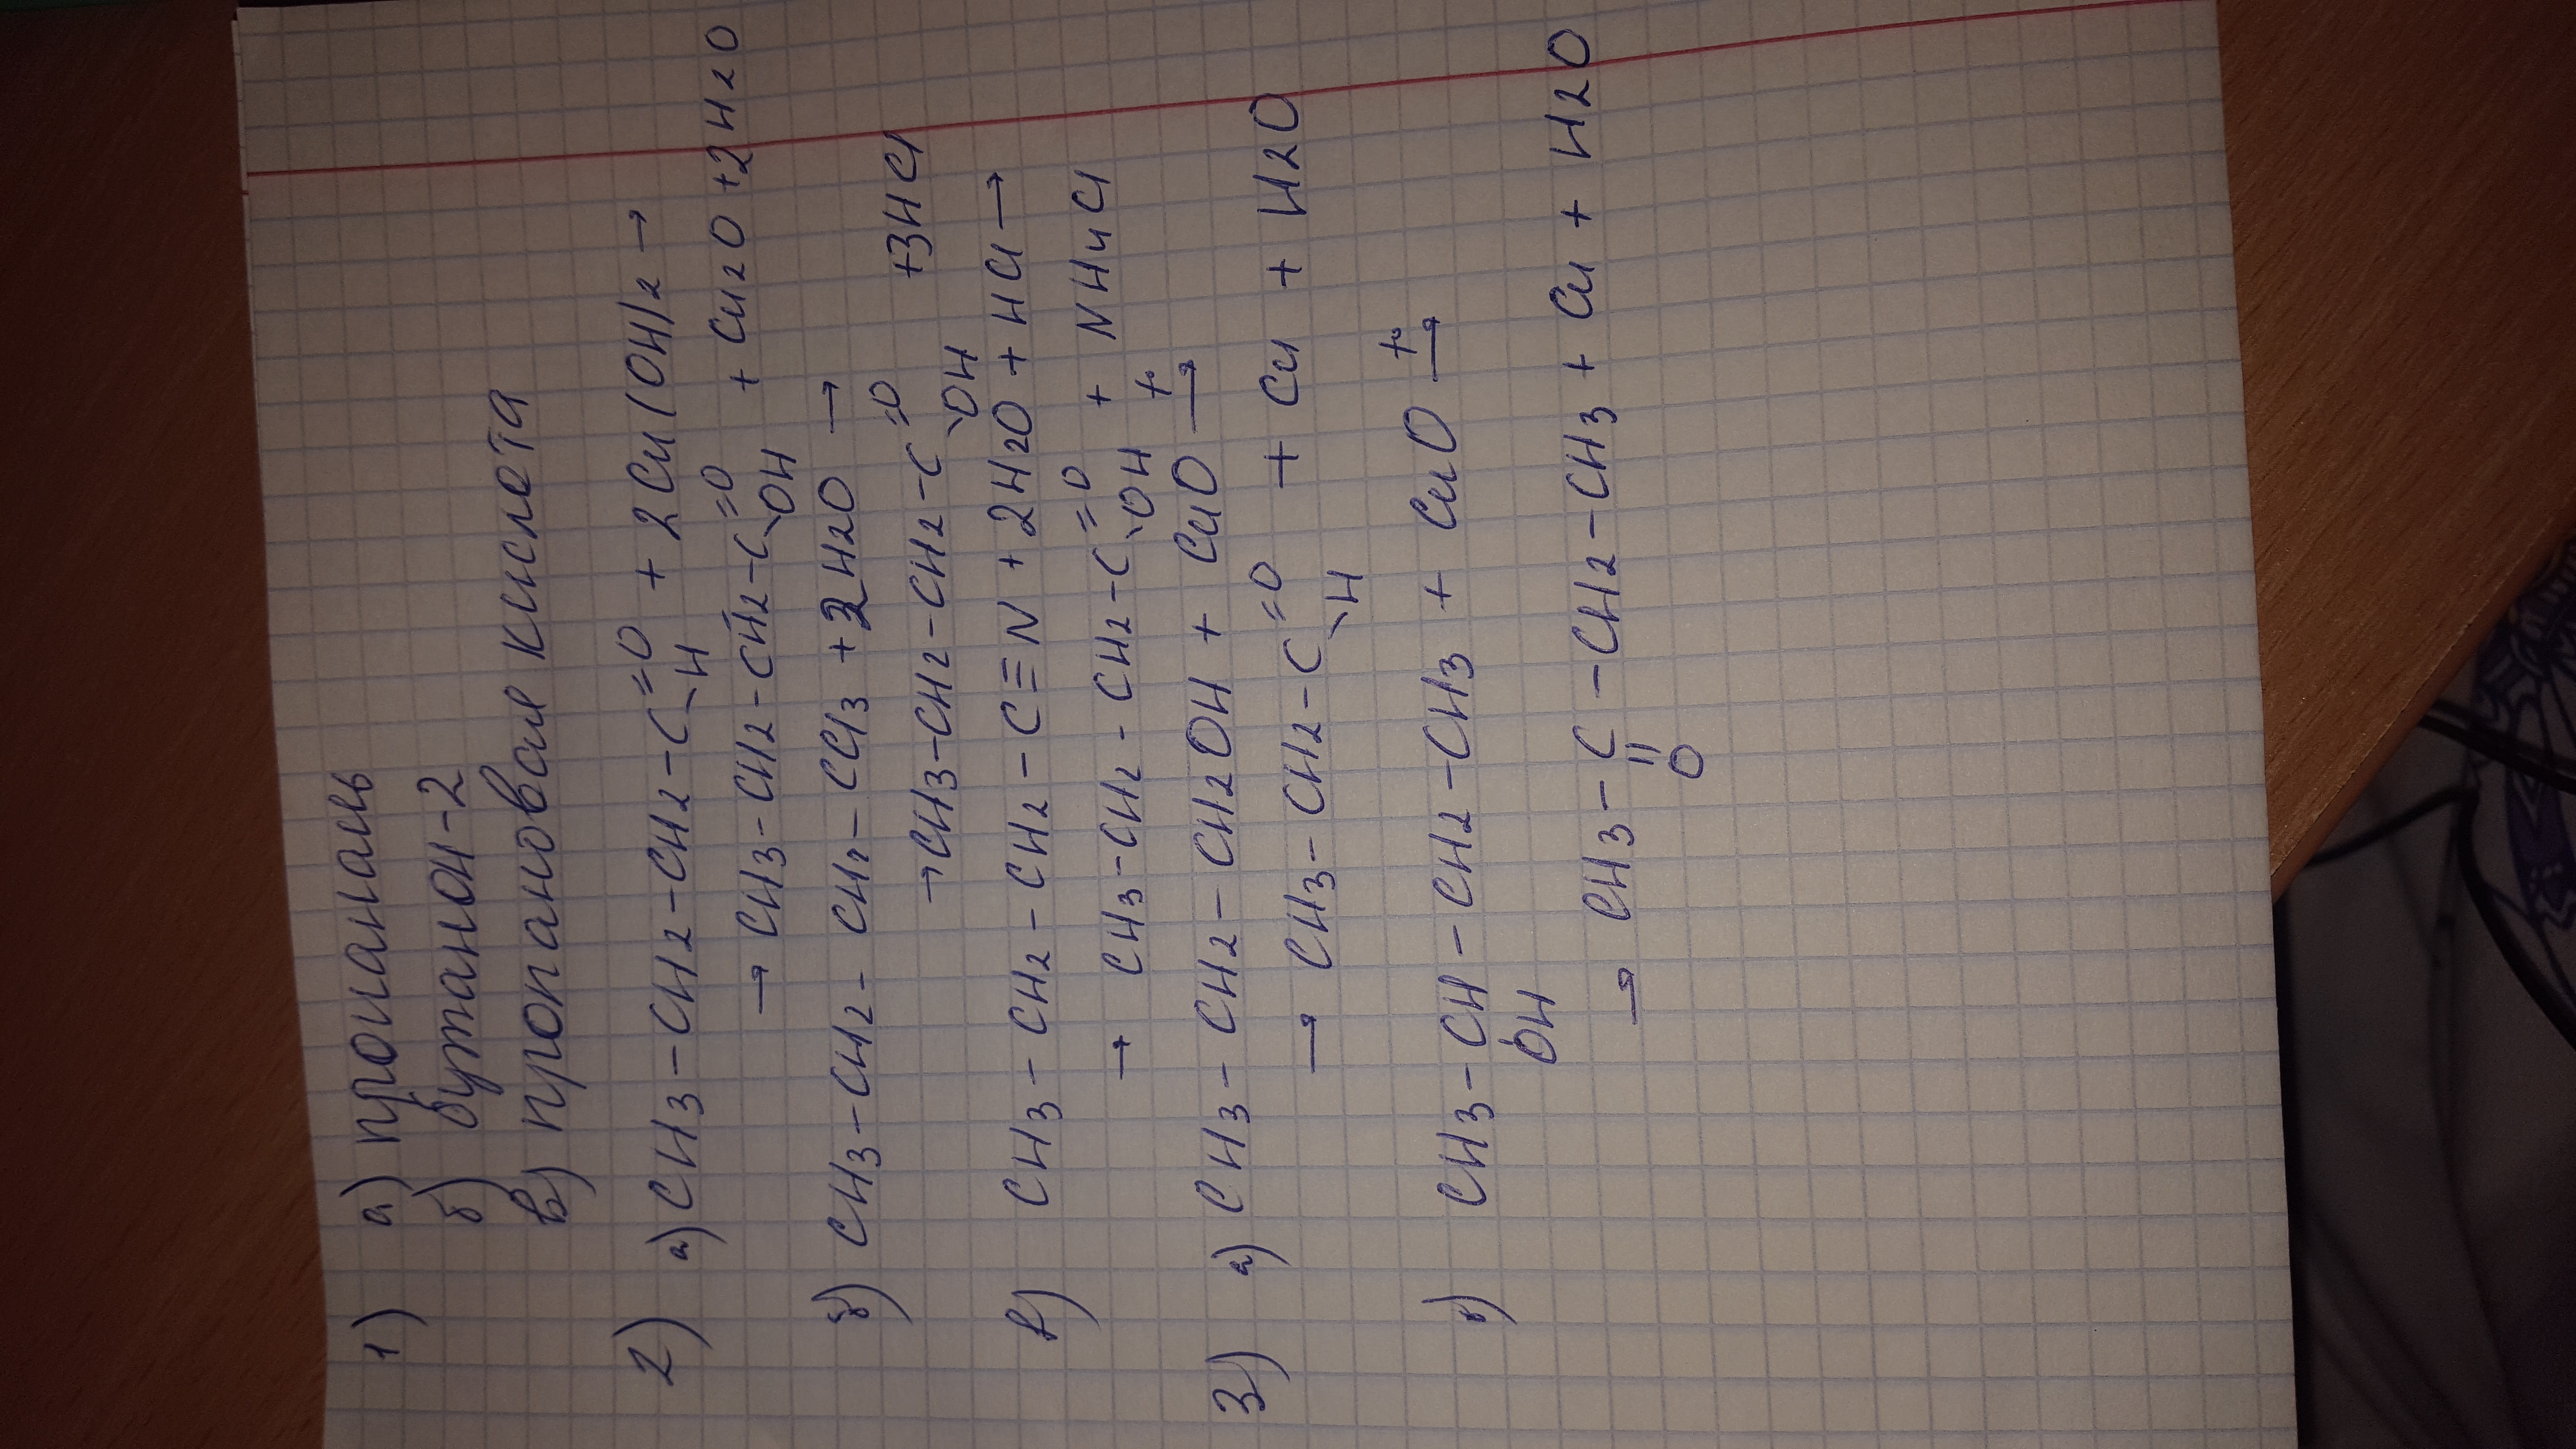 1) а) пропаналь
б) бутанон-2
в) пропановая кислота
2) а) CH3-CH2-CH2-C=O\H + 2Cu(OH)2 →
→ CH3-CH2-CH2-C=O\OH + Cu2O + 2H2O
б) CH3-CH2-CH2-CCl3 + 2H2O →
→ CH3-CH2-CH2-C=O\OH +3HCl
в) CH3-CH2-CH2-C≡N + 2H2O + HCl →
→ CH3-CH2-CH2-C=O\OH + NH4Cl
3) а) CH3-CH2-CH2OH + CuO t°→
→ CH3-CH2-C=O\H + Cu + H2O
CH3-CH-CH2-CH3 + CuO t°→
OH
→ CH3-C-CH2-CH3 + Cu + H2O
=
O